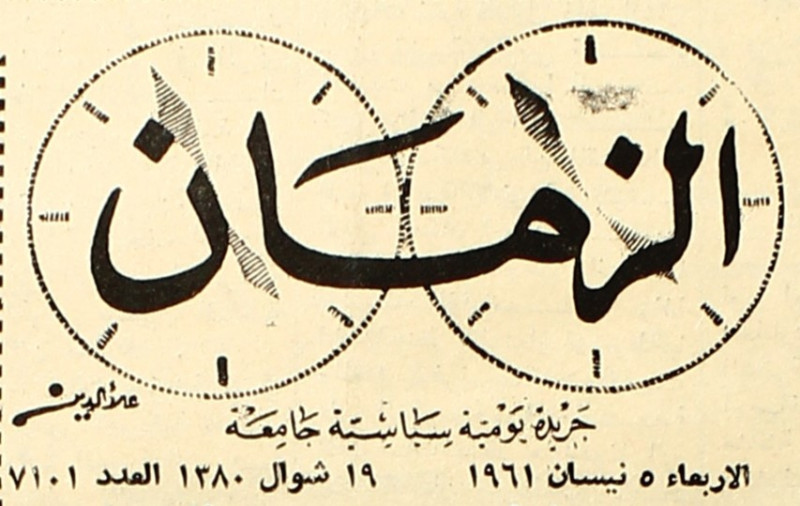 الزمان
علاءالدين
جريدة يومية سياسية جامعة
الاربعاء ٥ نيسان ١٩٦١ ١٩ شوال ١٣٨٠ العدد ٧١٠١